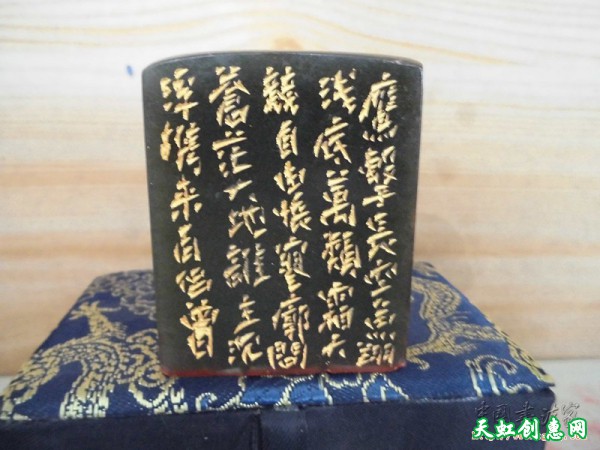 鷹擊長空魚翔
淺底萬類霜天
競自由悵寥廓問
蒼茫大地誰主沉
浮攜來百侣曾
天虹创惠网